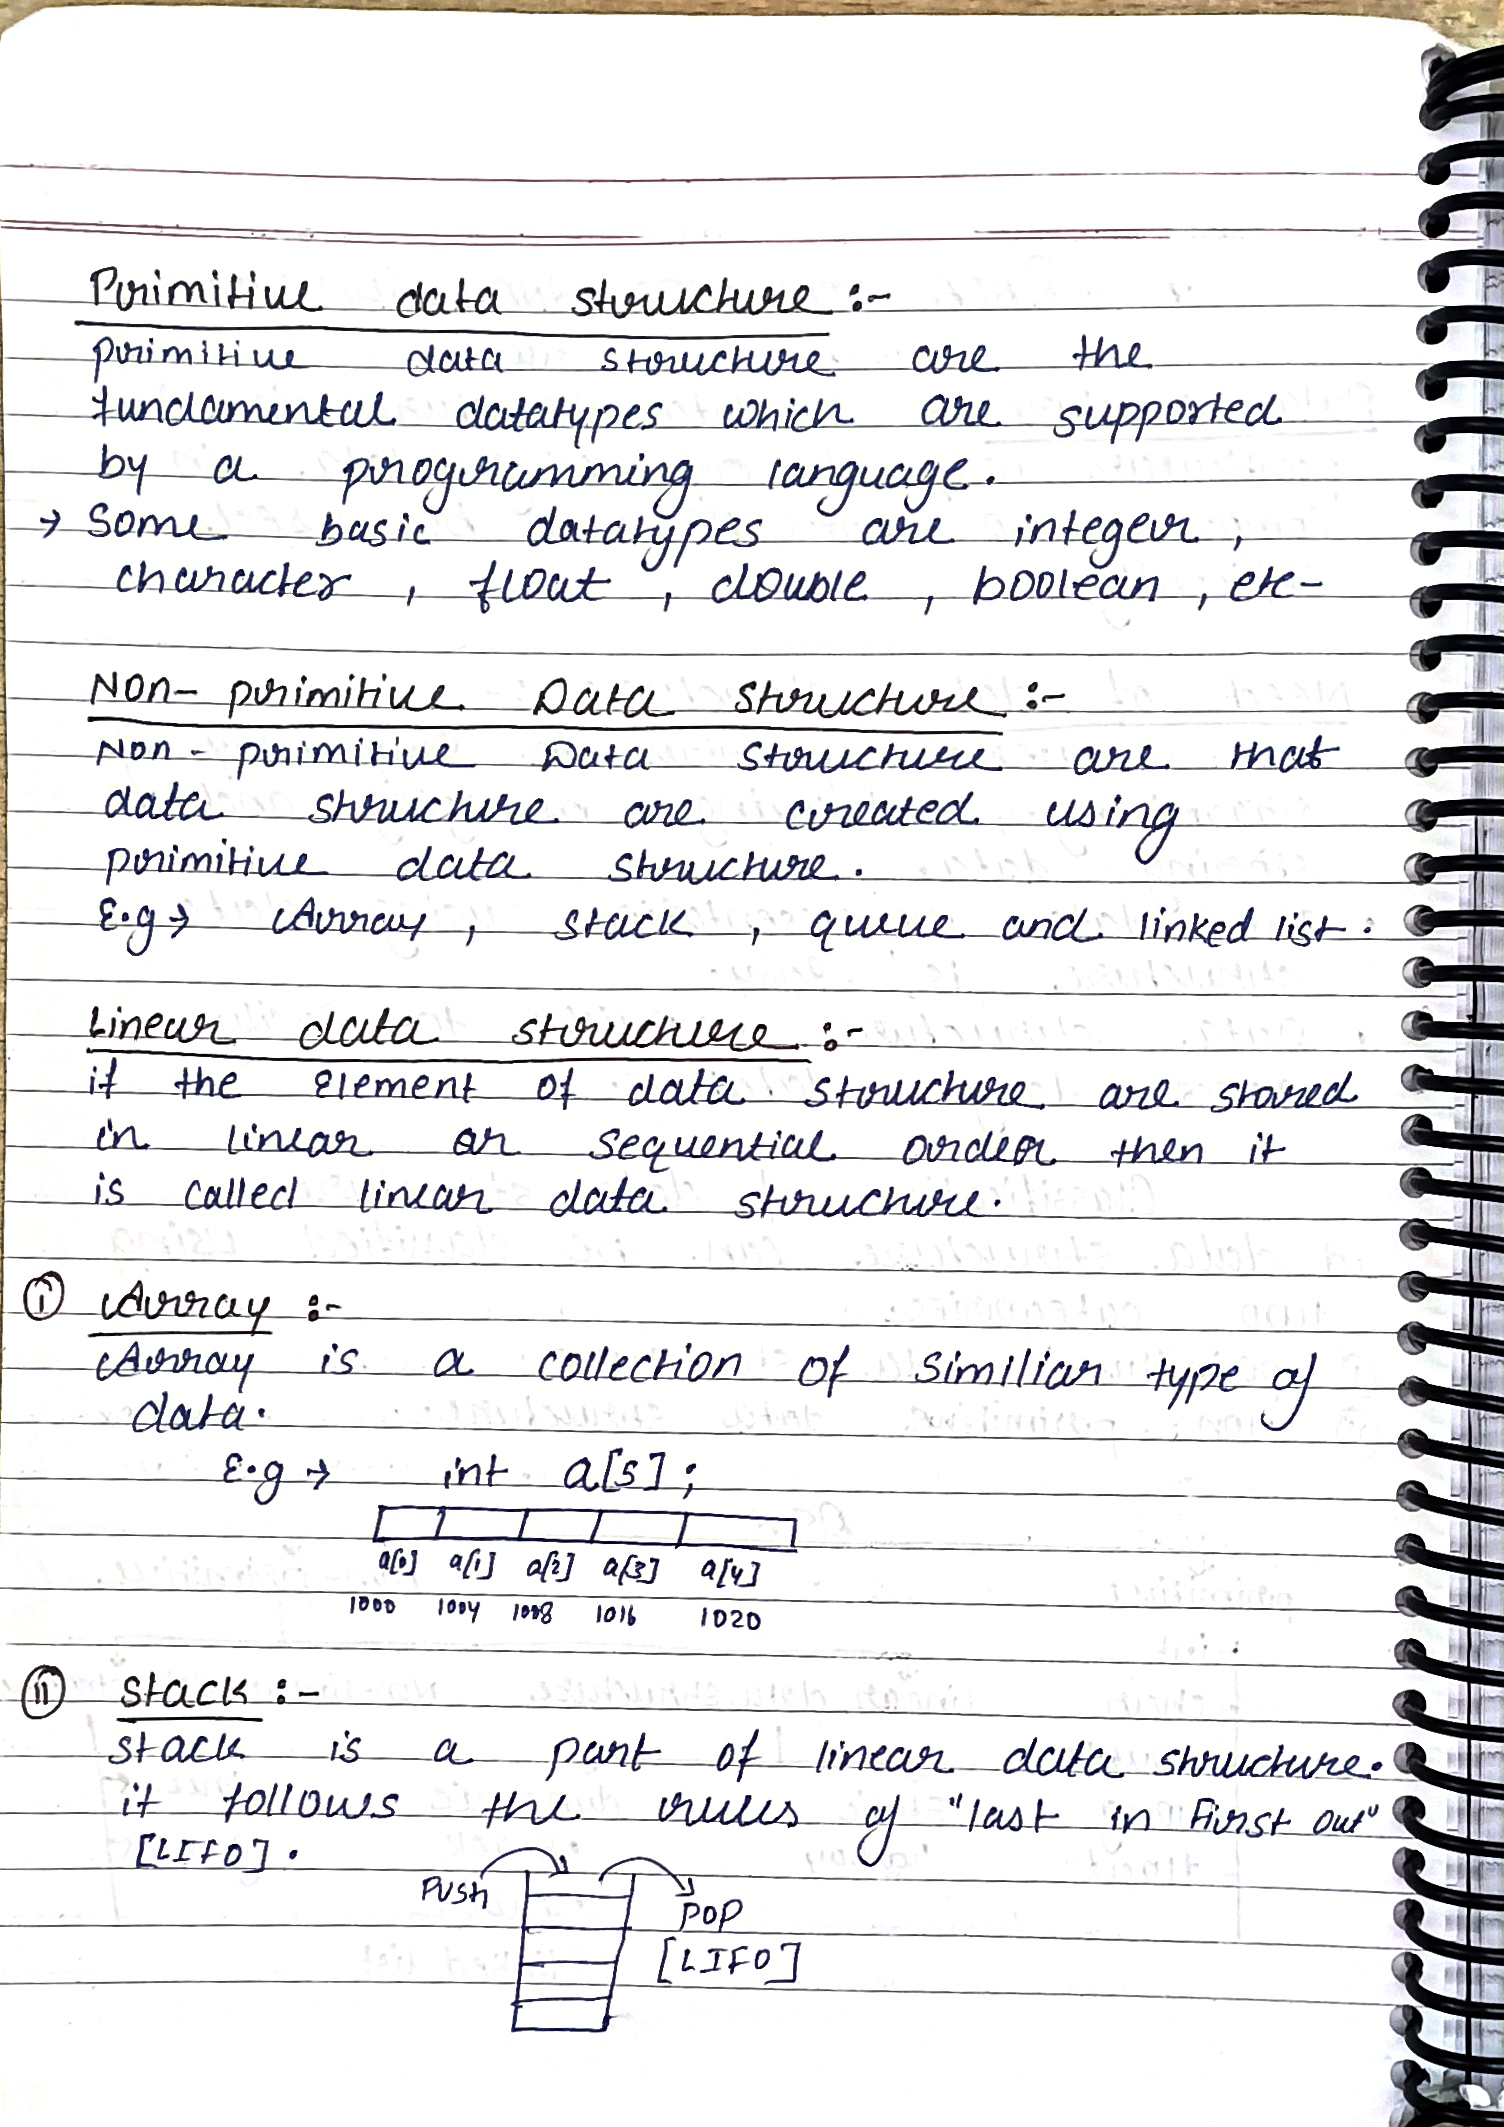 Primitive data structure :-
primitive data structure are the
fundamental datatypes which are supported
by a programming language.
→ Some basic datatypes are integer,
character, float, double, boolean, etc-
Non-primitive Data structure :-
Non-primitive Data structure are that
data structure are created using
primitive data structure.
E.g → Array, stack, queue and linked list.
Linear data structure :-
if the Element of data structure are stored
in linear or sequential order then it
is called linear data structure.
(i) Array :-
Array is a collection of similiar type of
data.
E.g → int a[5];
a[0] a[1] a[2] a[3] a[4]
1000 1004 1008 1016 1020
(ii) stack :-
stack is a part of linear data structure.
it follows the rules of "last in First out"
[LIFO].
PUSH
POP
[LIFO]